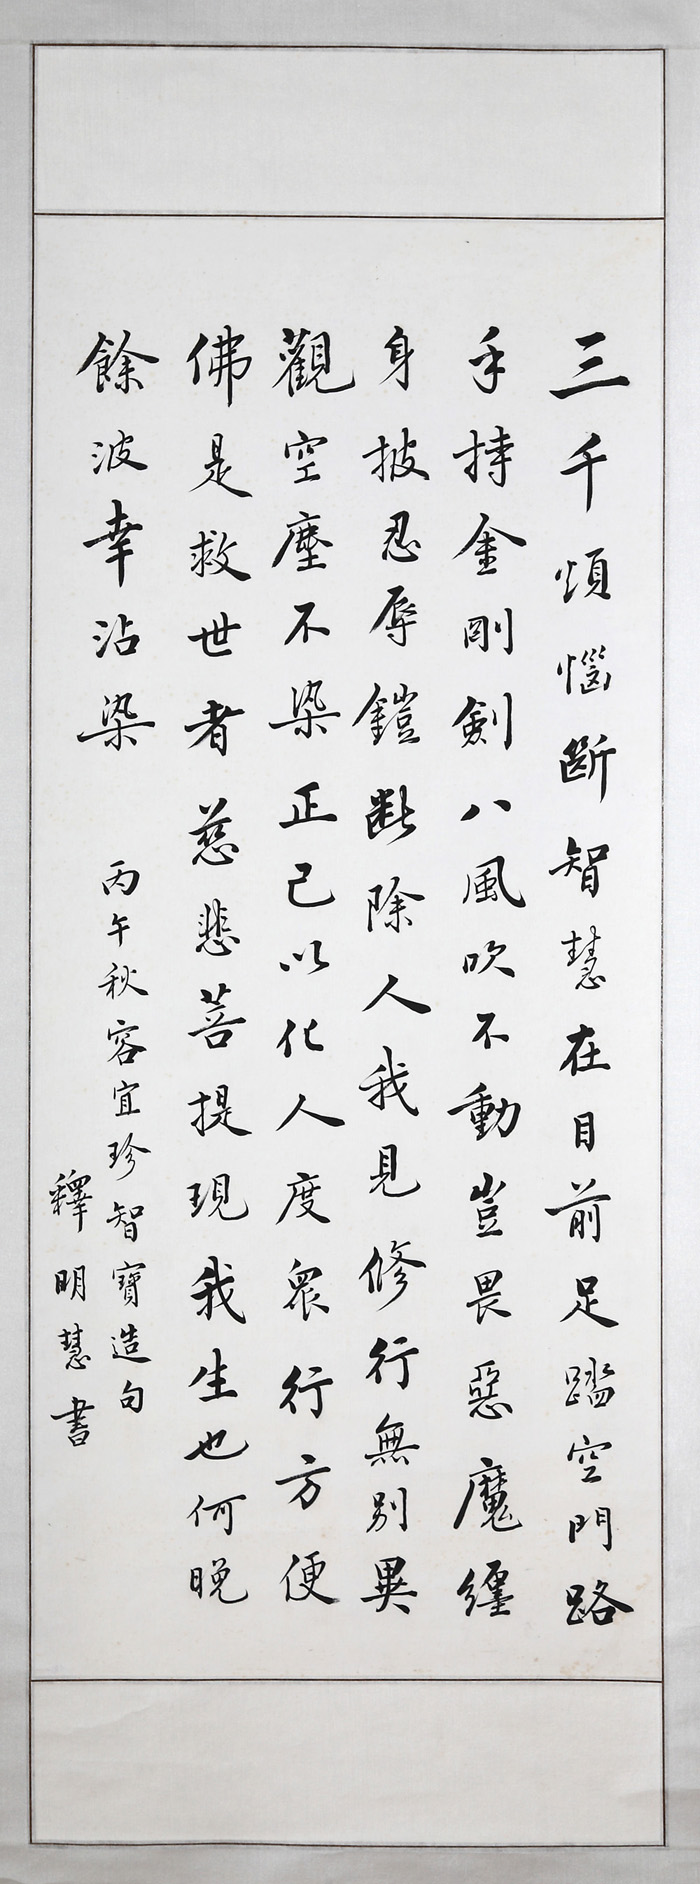 三千煩惱斷智慧在目前足踏空門路
手持金剛劍八風吹不動豈畏惡魔纏
身披忍辱鎧斷除人我見修行無別異
觀空塵不染正己以化人度眾行方便
佛是救世者慈悲菩提現我生也何晚
餘波幸沾染
丙午秋容宜珍智寶造句
釋明慧書